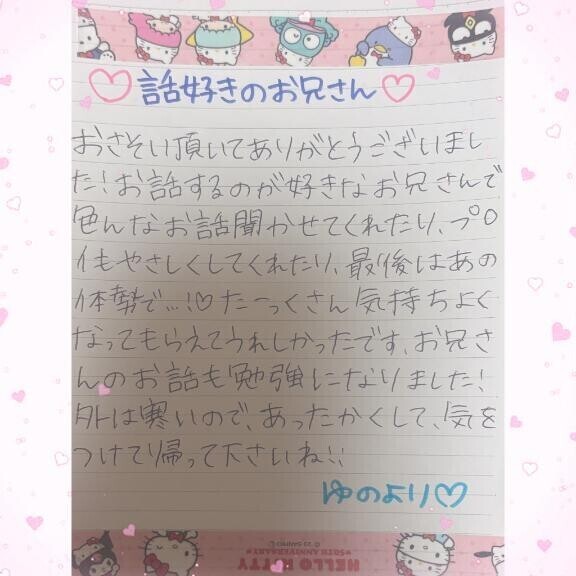 話好きのお兄さん
おさそい頂いてありがとうございまし
た!お話するのが好きなお兄さんで
色んなお話聞かせてくれたり、プロ
イもやさしくしてくれたり、最後はあの
体勢で…!♡たーっくさん気持ちよく
なってもらえてうれしかったです。お兄さ
んのお話も勉強になりました!
外は寒いので、あったかくして、気を
つけてり帰って下さいね!!
ゆのより♡
HELLO KITTY